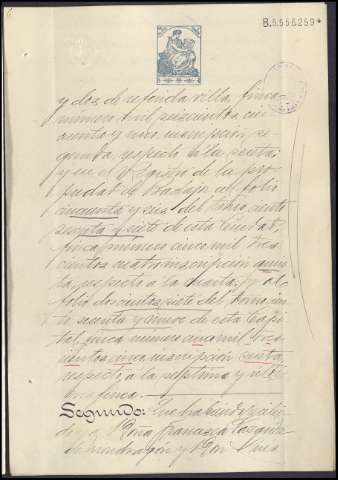 B.5.556259*
y dos de referida villa, finca
número mil seiscientos cin
cuenta y uno, inscripción se
gunda, respecto á la sexta;
y en el Registro de la pro
piedad de Badajoz al folio
cincuenta y seis del tomo ciento
sesenta y siete de esta Ciudad,
finca número cinco mil tres
cientos cuatro inscripción
respecto á la cuarta; y al
folio doscientos siete del tomo
sesenta y nueve de esta Capi
tal, finca número cinco mil tres
cientos cinco inscripción sexta,
respecto á la septima y
finca.
Segundo: Que habiendo
do Doña Francisca
de Mondragon y Don